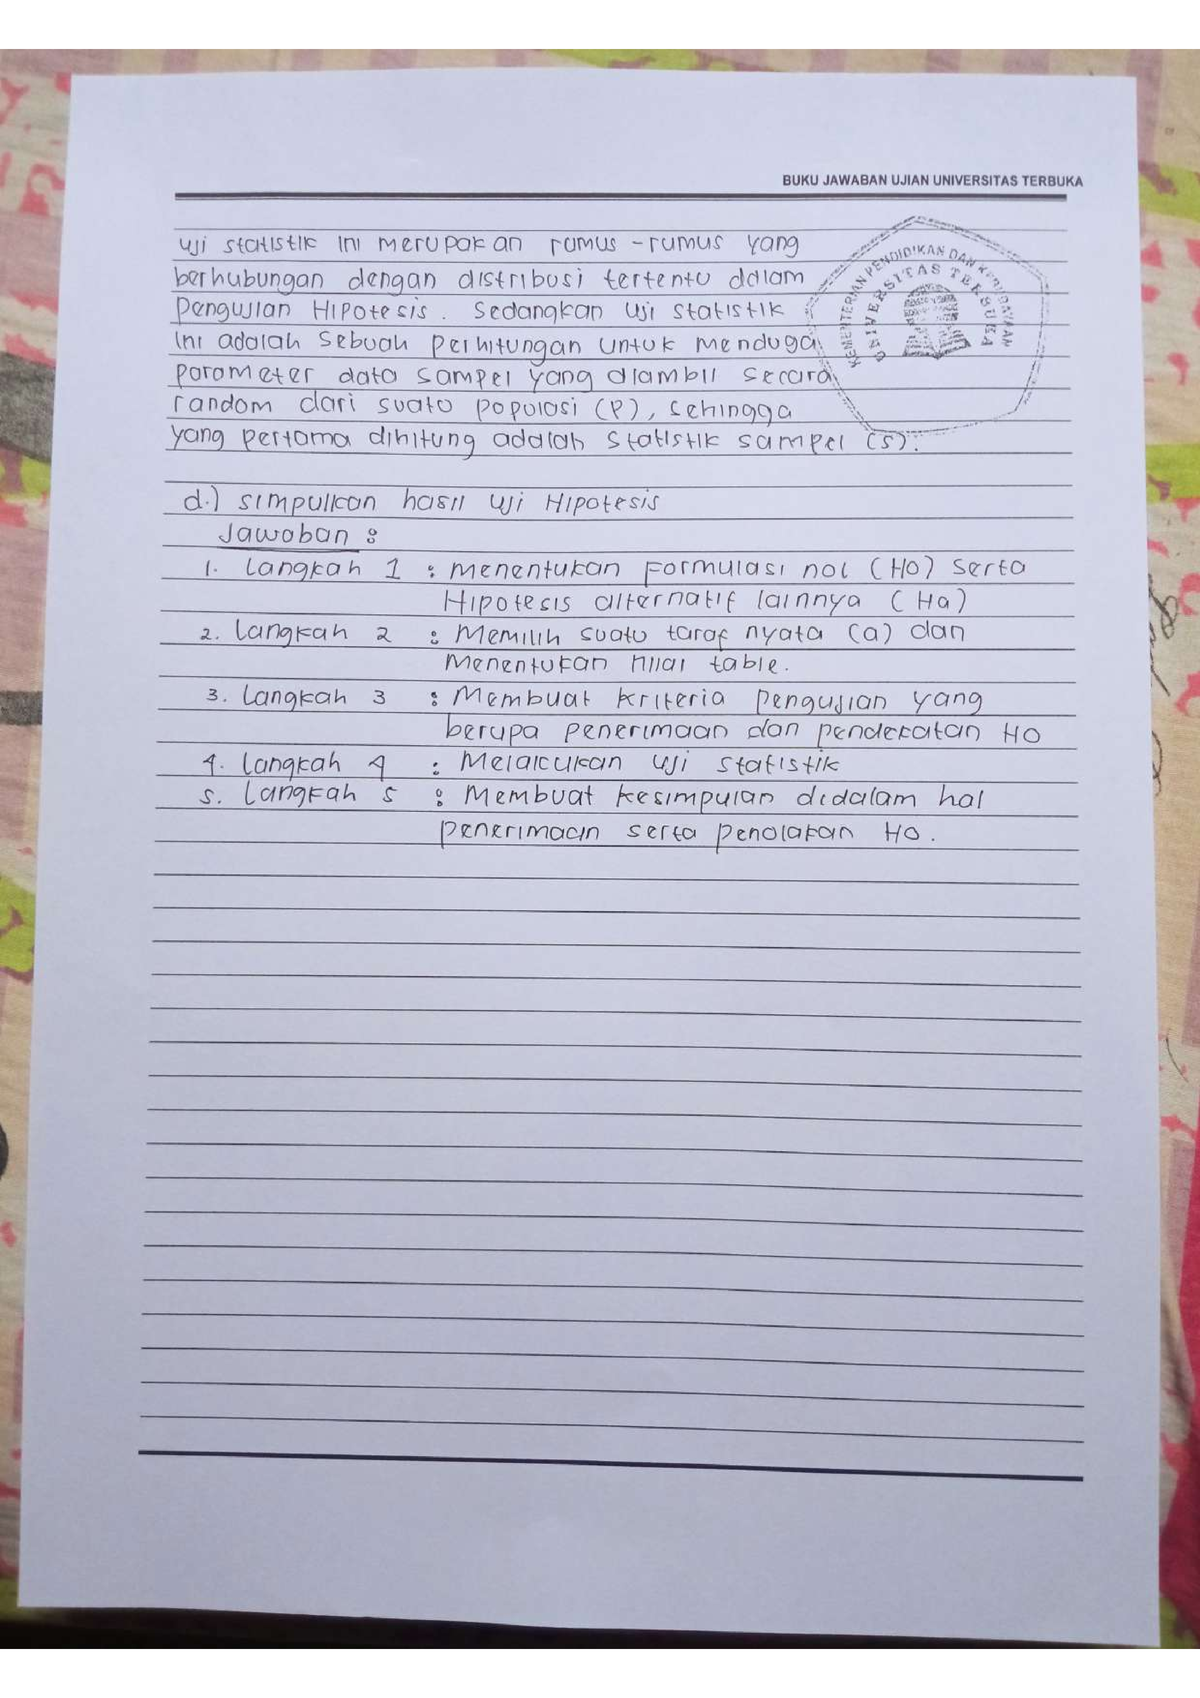 BUKU JAWABAN UJIAN UNIVERSITAS TERBUKA
KEMENTERIAN PENDIDIKAN DAN KEBUDAYAAN
UNIVERSITAS TERBUKA
uji statistik ini merupakan rumus-rumus yang
berhubungan dengan distribusi tertentu dalam
Pengujian Hipotesis. Sedangkan uji statistik
ini adalah sebuah perhitungan untuk menduga
parameter data sampel yang diambil secara
random dari suatu populasi (P), sehingga
yang pertama dihitung adalah statistik sampel (s).
d.) simpulkan hasil uji Hipotesis
Jawaban :
1. Langkah 1 : menentukan Formulasi nol (HO) serta
Hipotesis alternatif lainnya (Ha)
2. Langkah 2 : Memilih suatu taraf nyata (a) dan
Menentukan nilai table.
3. Langkah 3 : Membuat kriteria pengujian yang
berupa penerimaan dan pendekatan HO
4. Langkah 4 : Melakukan uji statistik
5. Langkah 5 : Membuat kesimpulan didalam hal
penerimaan serta penolakan HO.